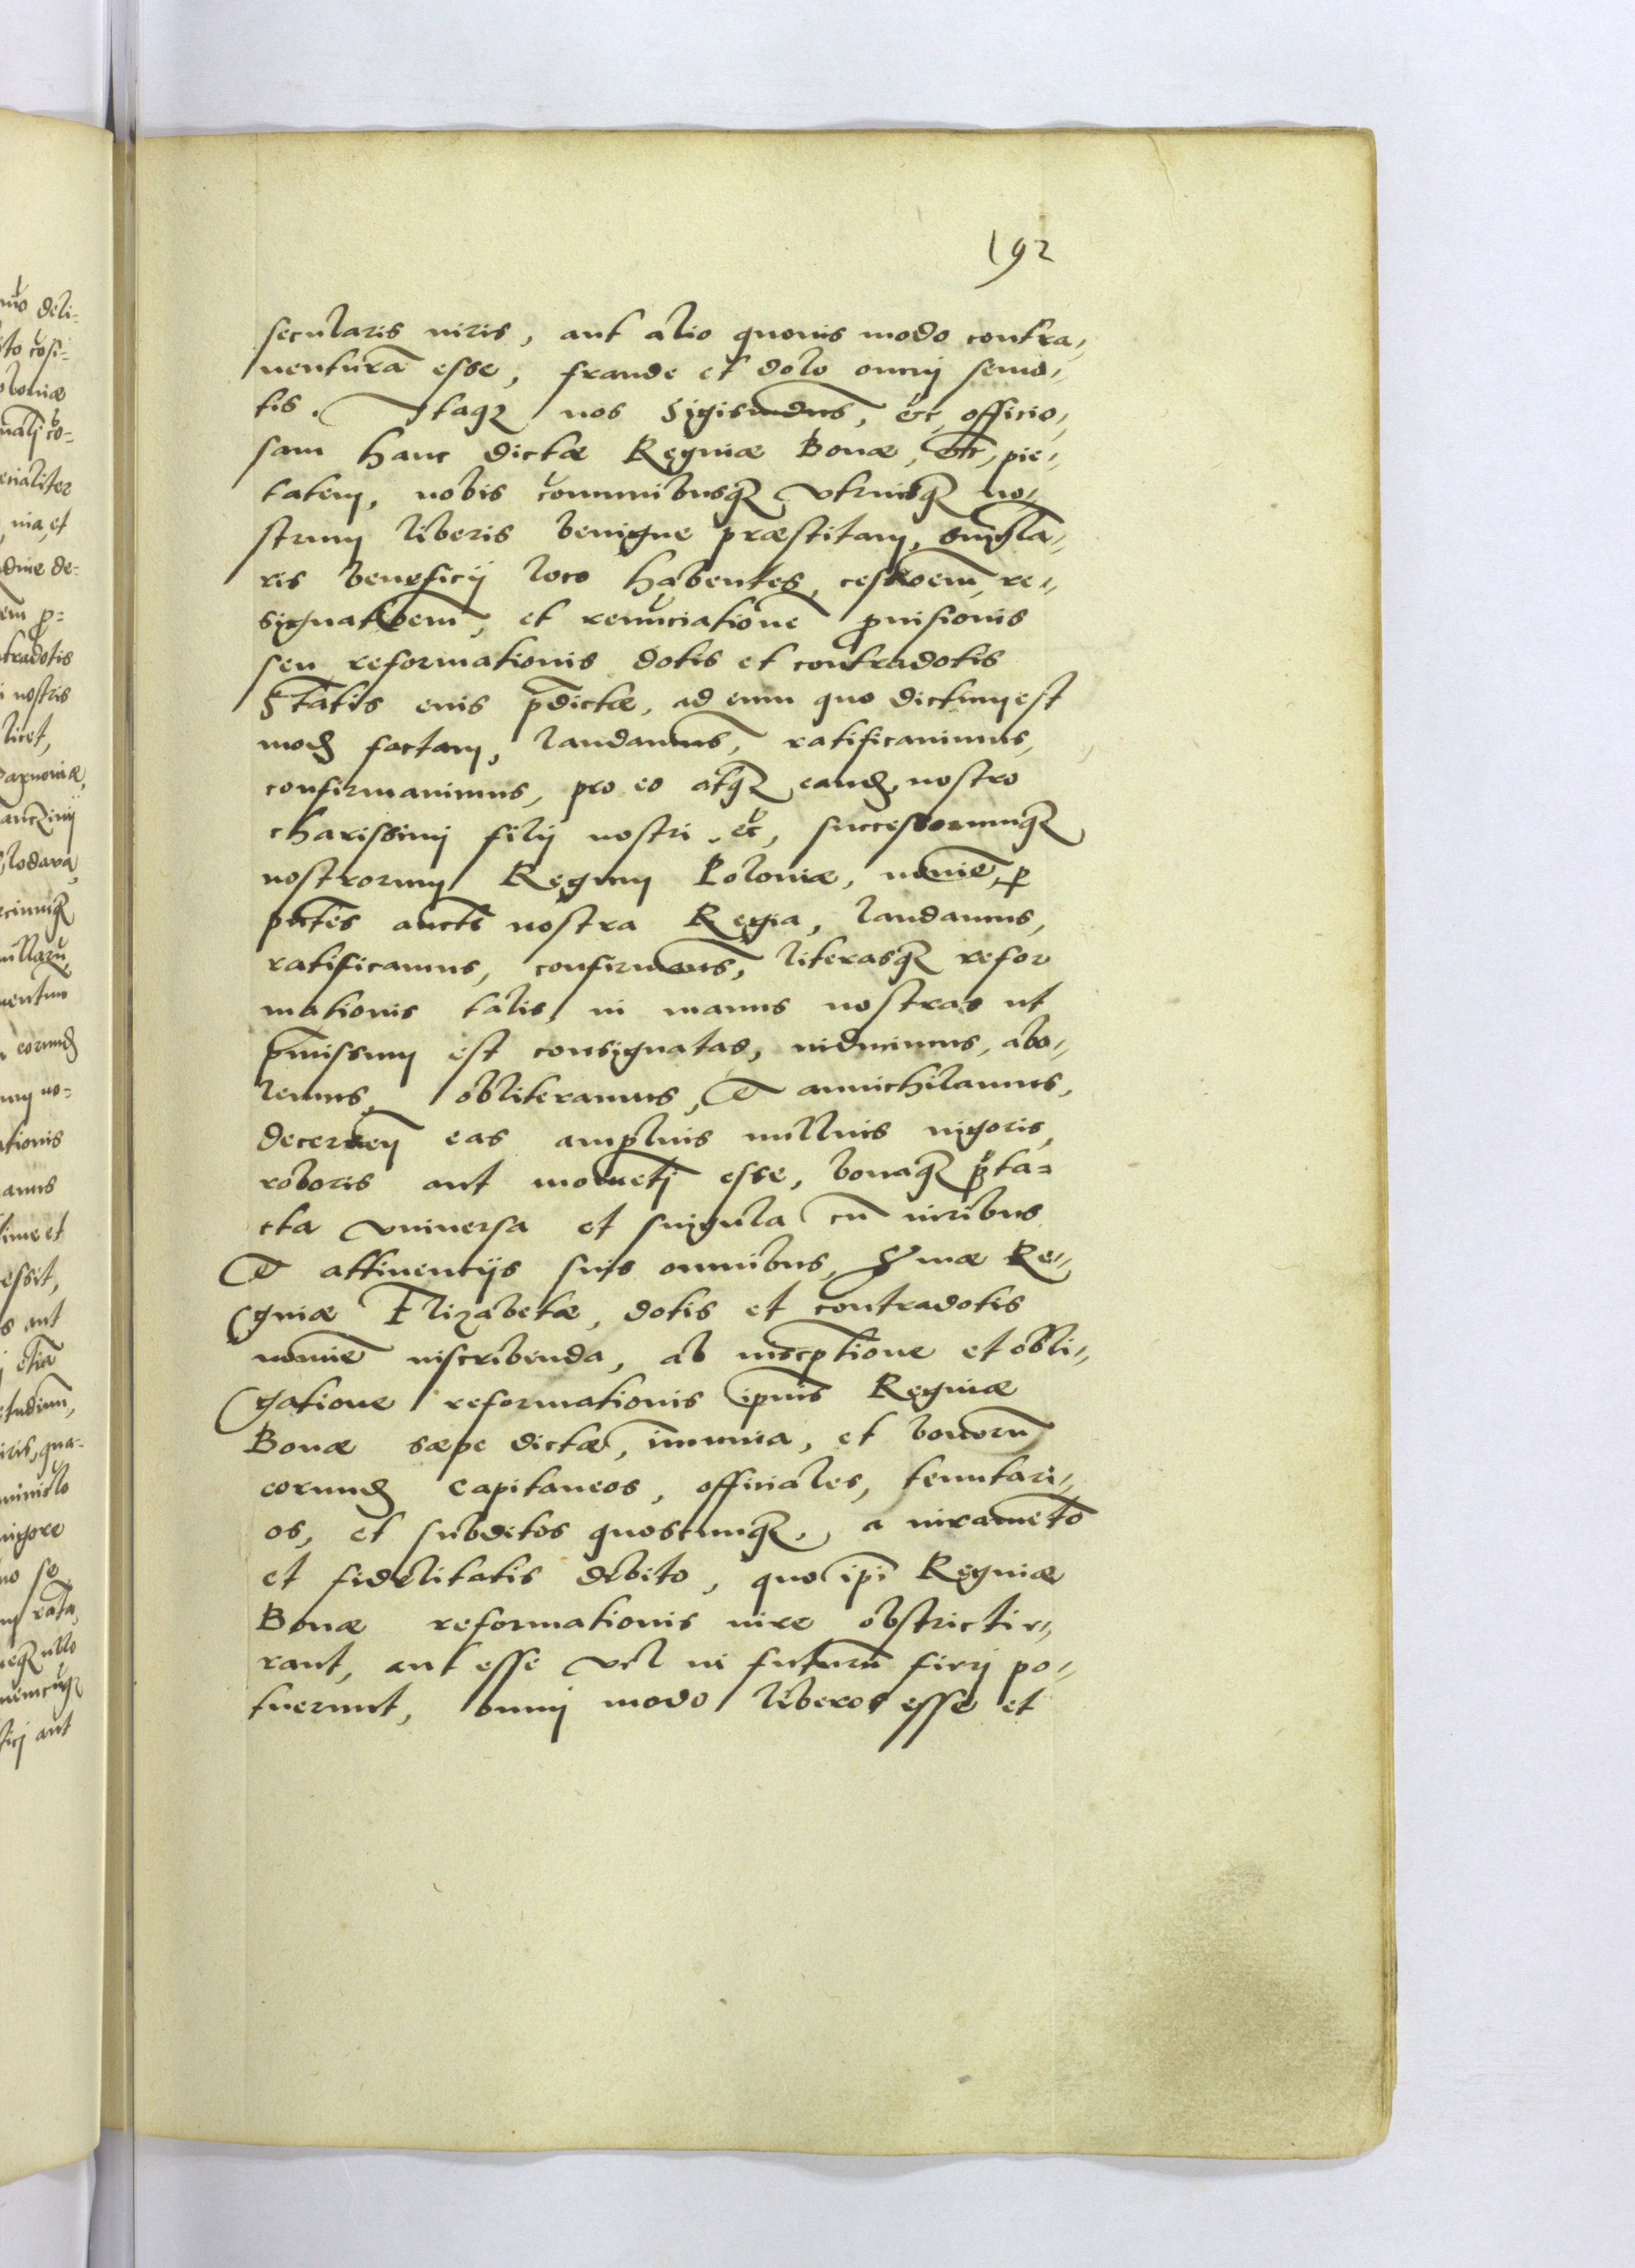 192
secularis iuris, aut alio quovis modo contra-
venturā esse, fraude et dolo omnj semo-
tis. Itaqꝫ nos Sigismūdus, ⁊c, officio-
sam hanc dictæ Reginæ Bonæ, etc, pie-
tatem, nobis communibusqꝫ vtriusqꝫ no-
strum liberis benigne præstitam, singula-
ris beneficij loco habentes, cessioem̄, re-
signatioem̄, et renūciationē ꝓvisionis
seu reformationis dotis et contradotis
S Ttatis eius p̄dictæ, ad eum quo dictum est
modꝫ factam, laudavimus, ratificavimus,
confirmavimus, pro eo atqꝫ eandꝫ, nostro
charissimj filij nostri, ⁊c, successorumqꝫ
nostrorum Regum Poloniæ, nomīe, ꝑ
pn̄tes auctē nostra Regia, laudamus,
ratificamus, confirmamus, literasqꝫ refor
mationis talis, in manus nostras ut
p̄missum est consignatas, inducimus, abo-
lemus, obliteramus, Et annichilamus,
decernen̄ eas amplius nullius vigoris,
roboris aut momētj esse, bonaqꝫ p̄ta-
cta vniversa et singula cū iuribus
Et attinentijs suis omnibus, Sermæ Re-
ginæ Elizabetæ, dotis et contradotis
nomīe inscribenda, ab inscptione et obli-
gatione reformationis ip̄ius Reginæ
Bonæ sæpe dictæ, īmunia, et bonorū
eorundꝫ Capitaneos, officiales, tenutari-
os, et subditos quoscunqꝫ, a iuramēto
et fidelitatis debito, quo ip̄i Reginæ
Bonæ reformationis iure obstricti e-
rant, aut esse vel in futurū fierj po-
tuerunt, omnj modo liberos esse et